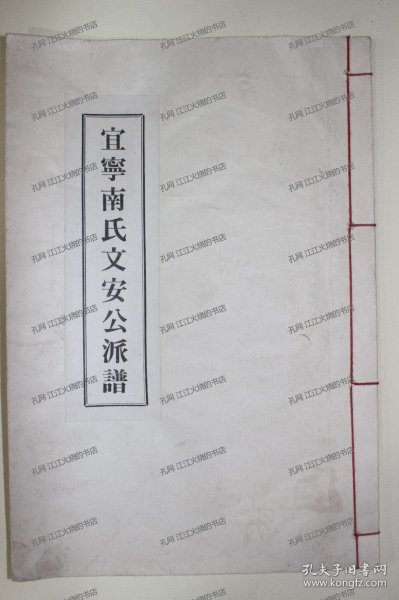 宜寧南氏文安公派譜
孔网 江江火烧的书店
孔夫子旧书网
www.kongfz.com